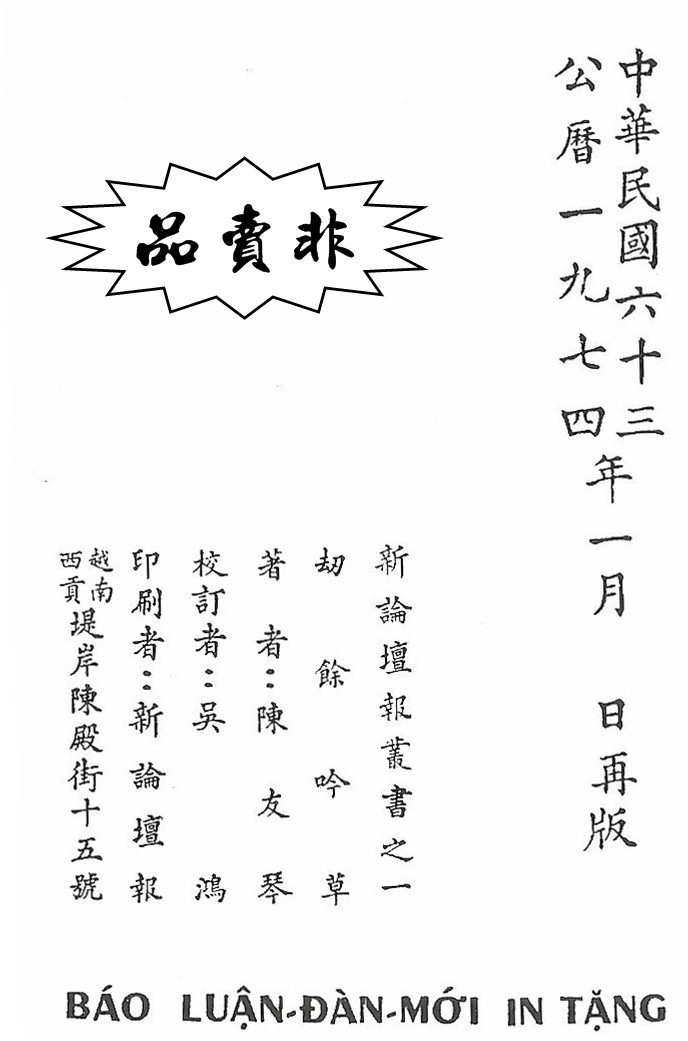 中華民國六十三
公曆一九七四
年一月　日再版
非賣品
新論壇報叢書之一
劫餘吟草
著者：陳友琴
校訂者：吳鴻
印刷者：新論壇報
越南
西貢
堤岸陳殿街十五號
BÁO LUẬN-ĐÀN-MỚI IN TẶNG